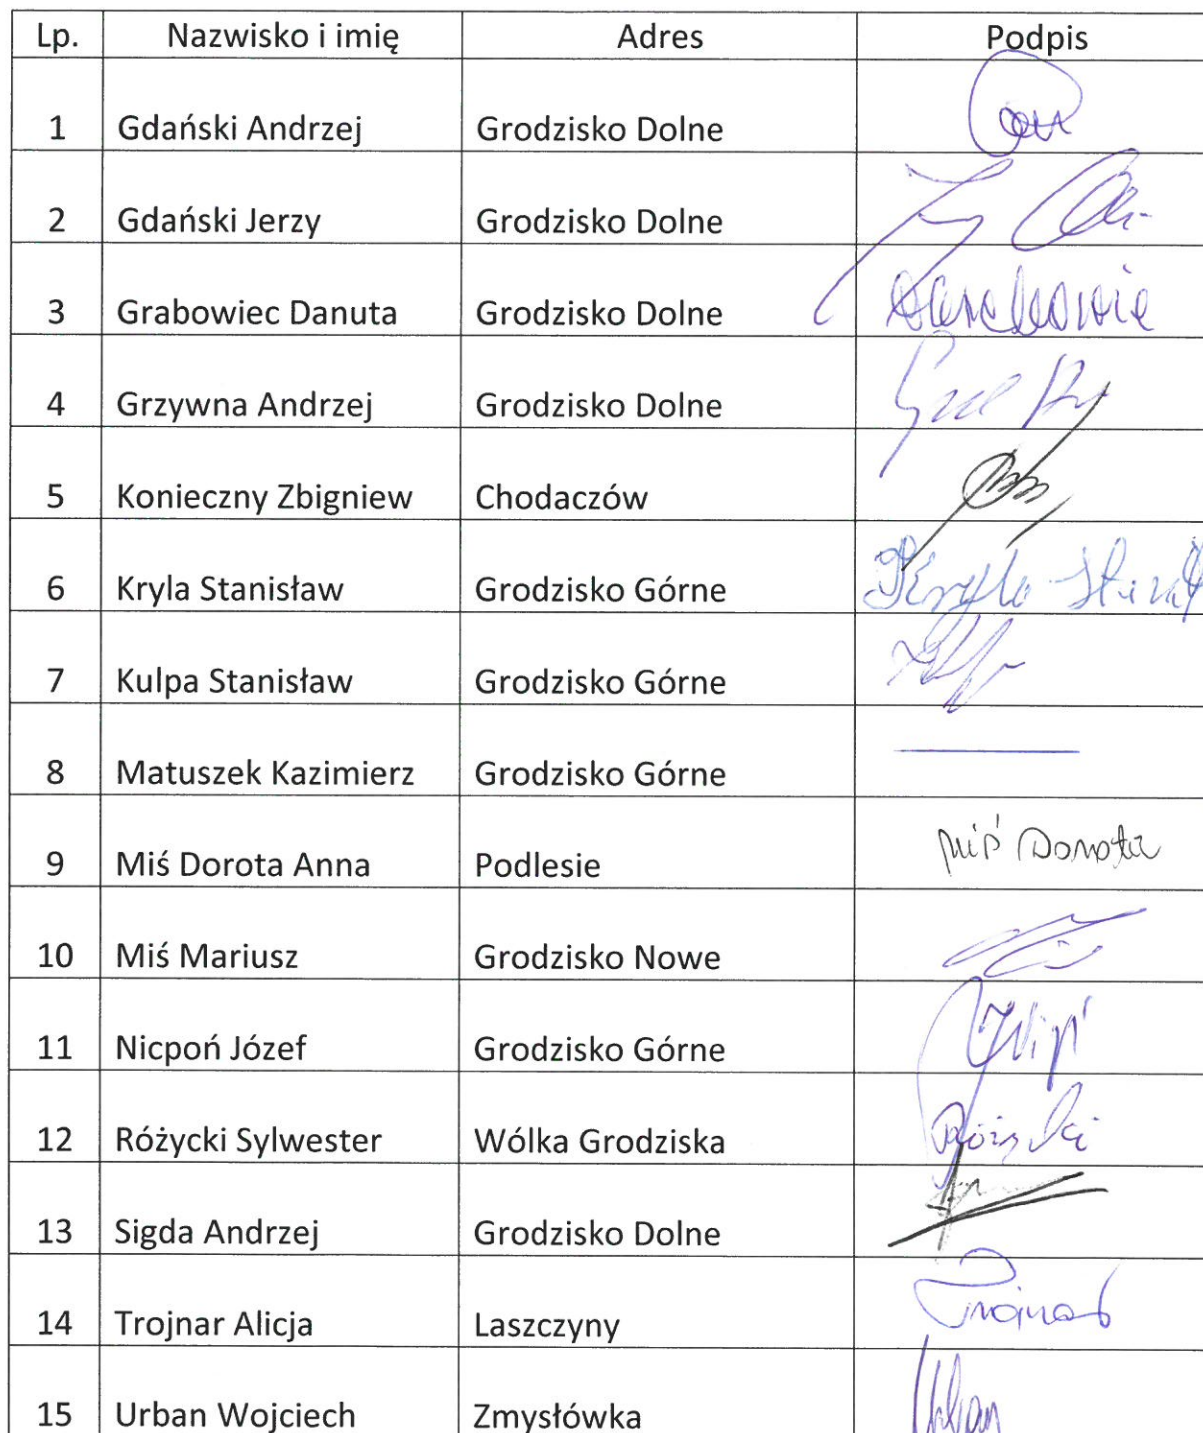 Lp. Nazwisko i imię Adres Podpis
1 Gdański Andrzej Grodzisko Dolne
2 Gdański Jerzy Grodzisko Dolne
3 Grabowiec Danuta Grodzisko Dolne
4 Grzywna Andrzej Grodzisko Dolne
5 Konieczny Zbigniew Chodaczów
6 Kryla Stanisław Grodzisko Górne Kryla
7 Kulpa Stanisław Grodzisko Górne
8 Matuszek Kazimierz Grodzisko Górne
9 Miś Dorota Anna Podlesie Miś Dorota
10 Miś Mariusz Grodzisko Nowe
11 Nicpoń Józef Grodzisko Górne
12 Różycki Sylwester Wólka Grodziska
13 Sigda Andrzej Grodzisko Dolne
14 Trojnar Alicja Laszczyny Trojnar
15 Urban Wojciech Zmysłówka Urban